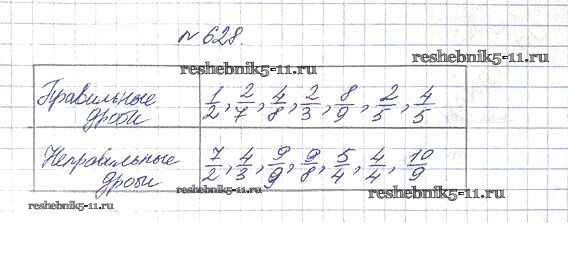 № 628.
reshebnik5-11.ru
reshebnik5-11.ru
Правильные дроби 1/2, 2/7, 4/8, 2/3, 8/9, 2/5, 4/5
Неправильные дроби 7/2, 4/3, 9/9, 9/8, 5/4, 4/4, 10/9
reshebnik5-11.ru
reshebnik5-11.ru